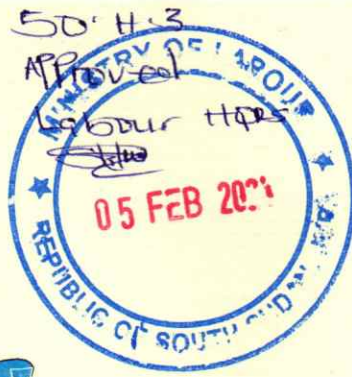 50. H.3
Approved
Labour HQRS
MINISTRY OF LABOUR
05 FEB
REPUBLIC OF SOUTH SUDAN